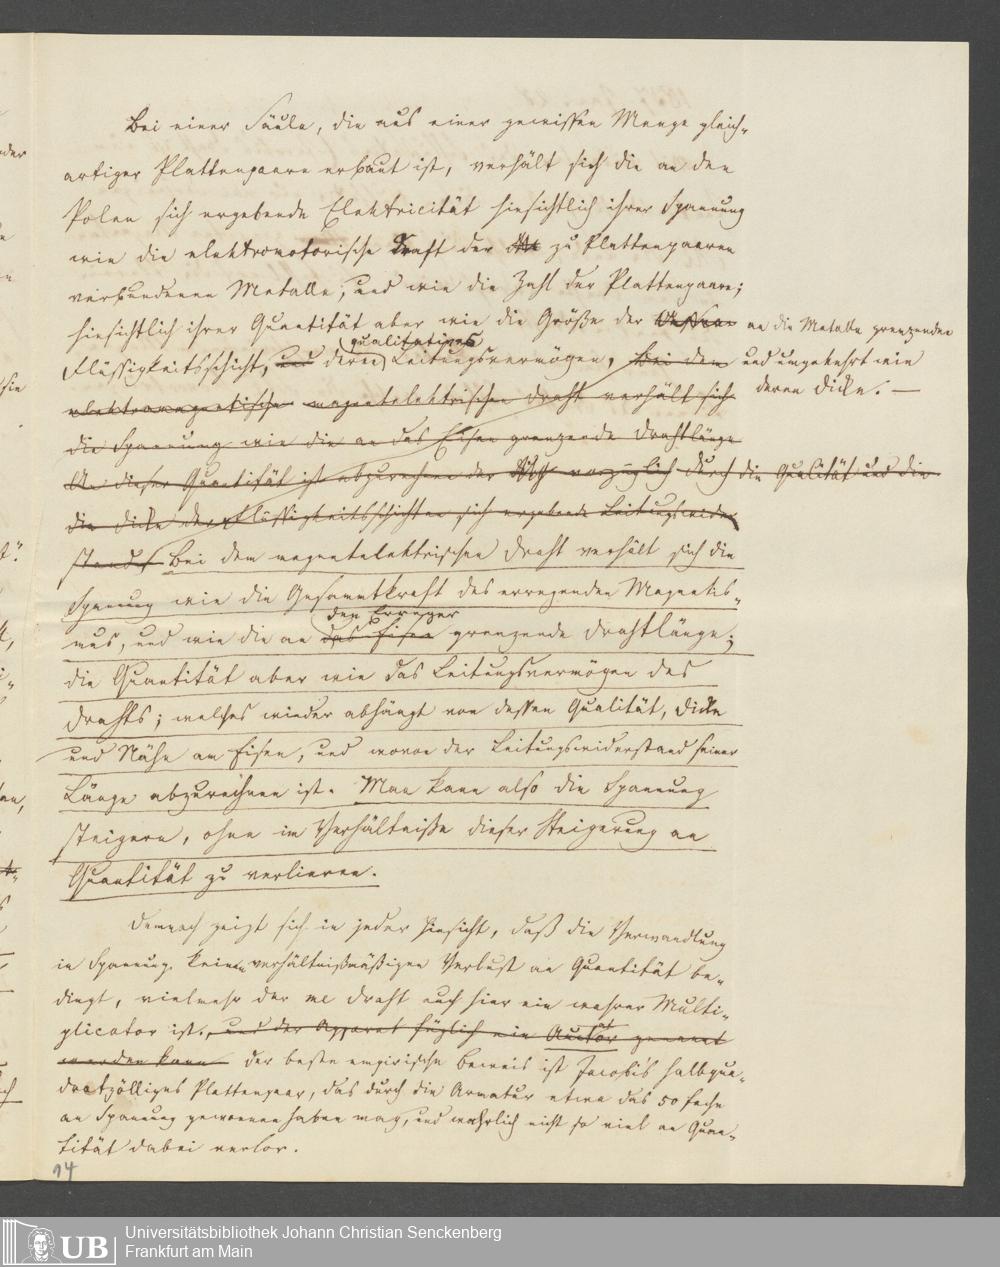 Bei einer Säule, die aus einer gewissen Menge gleich-
artiger Plattenpaare erbaut ist, verhält sich die an den
Polen sich ergebende Elektricität hinsichtlich ihrer Spannung
wie die elektromotorische Kraft der zu Plattenpaaren
verbundenen Metalle, und wie die Zahl der Plattenpaare;
hinsichtlich ihrer Quantität aber wie die Größe der an die Metalle grenzenden
qualitatives
Flüssigkeitsschicht, und deren Leitungsvermögen, bei dem und umgekehrt wie
elektromagnetischen magnetelektrischen Draht verhält sich deren Dicke. —
die Spannung wie die an das Eisen grenzende Drahtlänge
An dieser Quantität ist abzurechnen der vorzüglich durch die Qualität und die
die Dicke der Flüssigkeitsschichten sich ergebende Leitungswider
stand. Bei dem magnetelektrischen Draht verhält sich die
Spannung wie die Gesammtkraft des erregenden Magnetis-
den Erreger
mus, und wie die an das Eisen grenzende Drahtlänge;
die Quantität aber wie das Leitungsvermögen des
Drahts; welches wieder abhängt von dessen Qualität, Dicke
und Nähe am Eisen, und wovon der Leitungswiderstand seiner
Länge abzurechnen ist. Man kann also die Spannung
steigern, ohne im Verhältniße dieser Steigerung an
Quantität zu verlieren.
Demnach zeigt sich in jeder Hinsicht, daß die Verwandlung
in Spannung keinen verhältnißmäßigen Verlust an Quantität be-
dingt, vielmehr der me Draht auch hier ein wahrer Multi-
plicator ist, und der Apparat füglich ein Auctor genannt
werden kann der beste empirische Beweis ist Jacobi's halbqua-
dratzölliges Plattenpaar, das durch die Armatur etwa das 50fache
an Spannung gewonnen haben mag, und wahrlich nicht so viel an Quan-
tität dabei verlor.
14
UB
Universitätsbibliothek Johann Christian Senckenberg
Frankfurt am Main